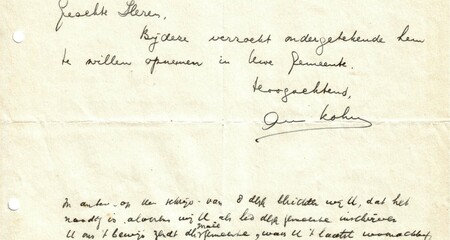 Geachte Heeren,
Bij deze verzoekt ondergetekende hem
te willen opnemen in Uwe Gemeente.
Hoogachtend,
Kohn
In antw. op Uw schrijv. van 8 dezer berichten wij U, dat het
noodig is, alvorens wij U als lid dezer gemeente inschrijven
U ons 't bewijs zendt der gemeente, waar U 't laatst